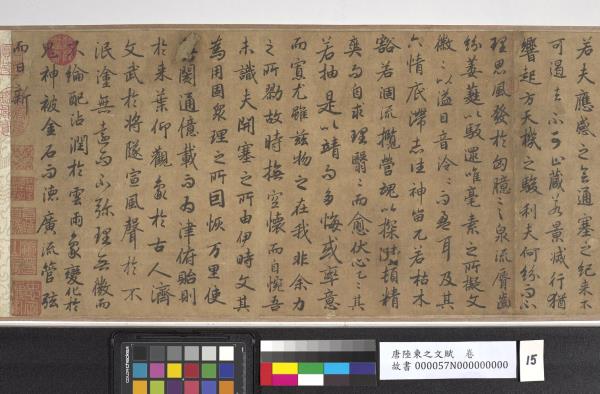 若夫應感之會通塞之紀来不
可遏去不可止藏若景滅行猶
響起方天機之駿利夫何紛而不
理思風發於匈臆之泉流脣齒
紛葳蕤以馺遝唯毫素之所擬文
徽々以溢目音泠々而盈耳及其
六情底滯志往神留兀若枯木
豁若涸流攬營魂以探賾頓精
爽而自求理翳々而愈伏思乙々其
若抽是以靖而多悔或率意
而寡尤雖茲物之在我非余力
之所勠故時撫空懷而自惋吾
未識夫開塞之所由伊時文其
為用固衆理之所因恢万里使
無閡通億載而為津俯貽則
於来葉仰觀象於古人濟
文武於將隧宣風聲於不
泯塗無遠而不弥理無微而
不綸配沾潤於雲雨象變化於
鬼神被金石而德廣流管弦
而日新
唐陸柬之文賦 卷
故書 000057N000000000
15